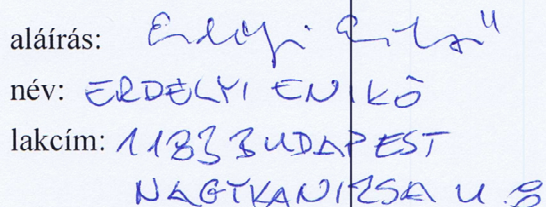 aláírás: Erdélyi Enikő
név: ERDÉLYI ENIKŐ
lakcím: 1183 BUDAPEST
NAGYKANIZSA U. 8